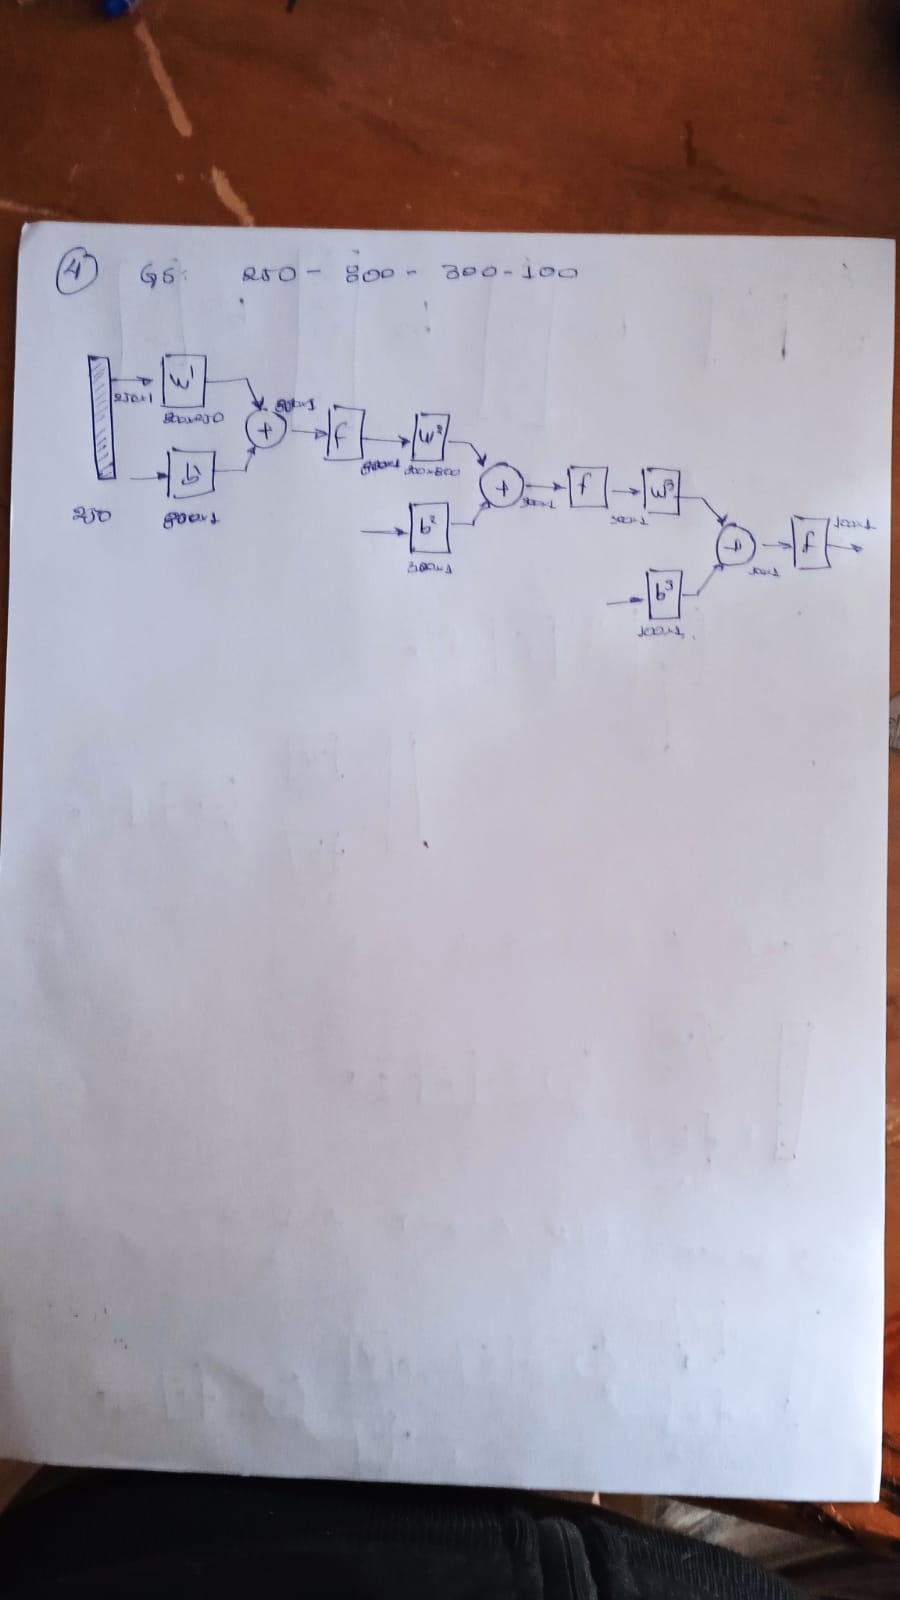 4 G5: 250 - 800 - 300 - 100
250x1 W¹ 800x250
b¹ 800x1
250
+ 800x1 f 800x1 W² 300x800
b² 300x1
+ 300x1 f 300x1 W³
b³ 100x1
+ 100x1 f 100x1